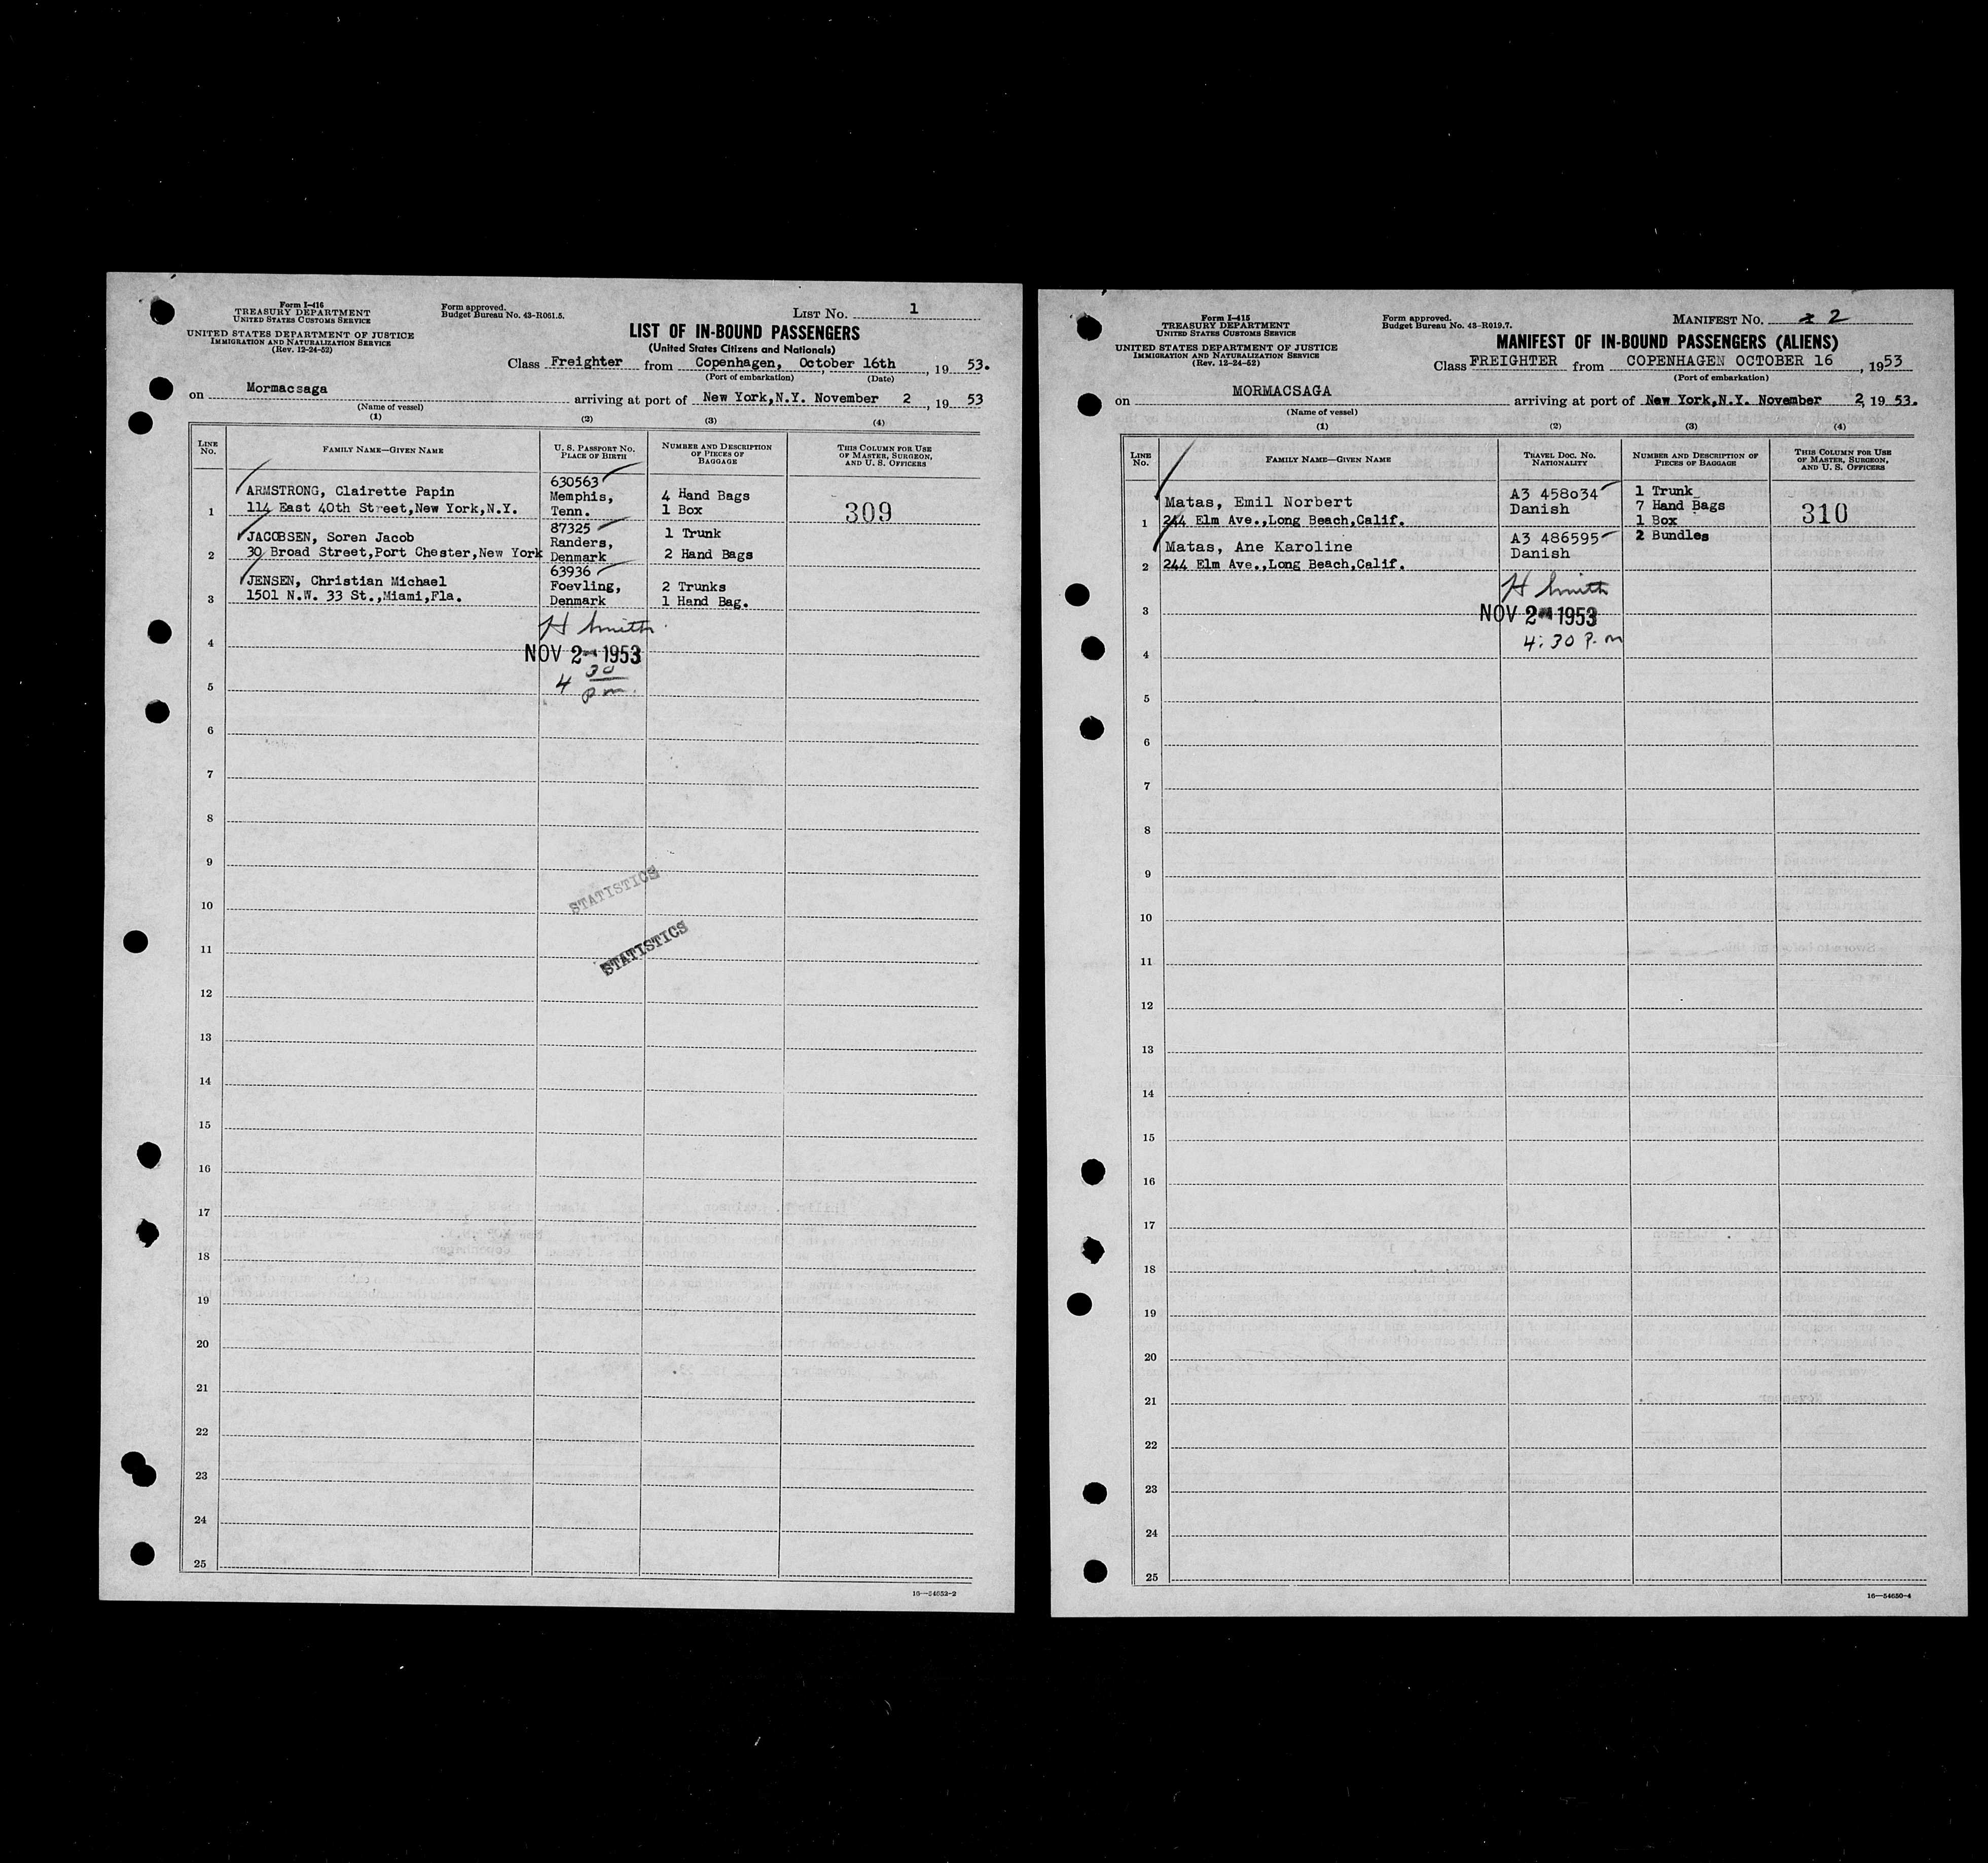 Form I-416
TREASURY DEPARTMENT
UNITED STATES CUSTOMS SERVICE
UNITED STATES DEPARTMENT OF JUSTICE
IMMIGRATION AND NATURALIZATION SERVICE
(Rev. 12-24-52)
Form approved.
Budget Bureau No. 43-R061.5.
LIST NO. 1
LIST OF IN-BOUND PASSENGERS
(United States Citizens and Nationals)
Class Freighter from Copenhagen, October 16th, 19 53.
(Port of embarkation) (Date)
on Mormacsaga arriving at port of New York,N.Y. November 2, 19 53
(Name of vessel)
(1) (2) (3) (4)
LINE NO.
FAMILY NAME—GIVEN NAME
U. S. PASSPORT NO.
PLACE OF BIRTH
NUMBER AND DESCRIPTION
OF PIECES OF
BAGGAGE
THIS COLUMN FOR USE
OF MASTER, SURGEON,
AND U. S. OFFICERS
630563
ARMSTRONG, Clairette Papin Memphis, 4 Hand Bags
1 114 East 40th Street,New York,N.Y. Tenn. 1 Box 309
87325
JACOBSEN, Soren Jacob Randers, 1 Trunk
2 30 Broad Street,Port Chester,New York Denmark 2 Hand Bags
63936
JENSEN, Christian Michael Foevling, 2 Trunks
3 1501 N.W. 33 St.,Miami,Fla. Denmark 1 Hand Bag.
H Smith
4 NOV 2 1953
4 30
p m.
5
6
7
8
9
STATISTICS
10
STATISTICS
11
12
13
14
15
16
17
18
19
20
21
22
23
24
25
16—54652-2
Form I-415
TREASURY DEPARTMENT
UNITED STATES CUSTOMS SERVICE
UNITED STATES DEPARTMENT OF JUSTICE
IMMIGRATION AND NATURALIZATION SERVICE
(Rev. 12-24-52)
Form approved.
Budget Bureau No. 43-R019.7.
MANIFEST NO. 2
MANIFEST OF IN-BOUND PASSENGERS (ALIENS)
Class FREIGHTER from COPENHAGEN OCTOBER 16, 1953
(Port of embarkation)
on MORMACSAGA arriving at port of New York,N.Y. November 2, 19 53.
(Name of vessel)
(1) (2) (3) (4)
LINE NO.
FAMILY NAME—GIVEN NAME
TRAVEL DOC. NO.
NATIONALITY
NUMBER AND DESCRIPTION OF
PIECES OF BAGGAGE
THIS COLUMN FOR USE
OF MASTER, SURGEON,
AND U. S. OFFICERS
A3 458034 1 Trunk
Matas, Emil Norbert Danish 7 Hand Bags 310
1 244 Elm Ave.,Long Beach,Calif. 1 Box
A3 486595 2 Bundles
Matas, Ane Karoline Danish
2 244 Elm Ave.,Long Beach,Calif.
H Smith
3 NOV 2 1953
4:30 P. m
4
5
6
7
8
9
10
11
12
13
14
15
16
17
18
19
20
21
22
23
24
25
16—54650-4